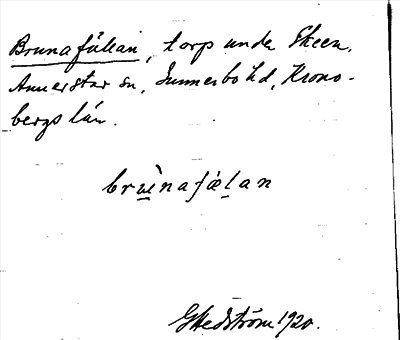 Brunafälian, torp under Skeen,
Annerstad sn, Sunnerbo hd, Krono-
bergs län.
brùnafälan
GHedström 1920.